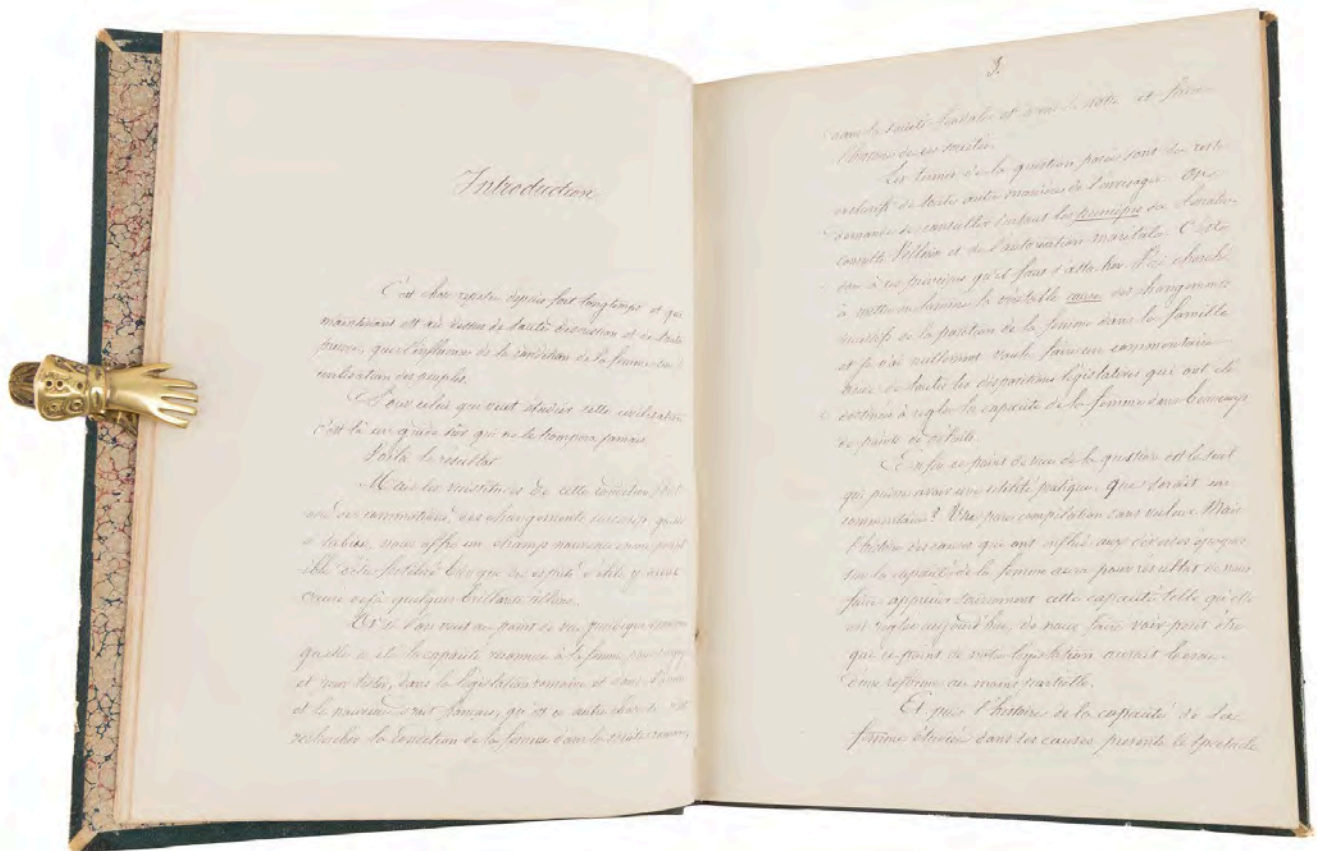 Introduction
C'est chose reçue depuis fort longtemps et qui
maintenant est au dessus de toute discussion et de toute
preuve, que l'influence de la condition de la femme sur la
civilisation des peuples.
Pour celui qui veut étudier cette civilisation
c'est là un guide sûr qui ne le trompera jamais.
Voilà le résultat.
Mais les vicissitudes de cette condition,
des commotions, des changements successifs,
nous offre un champ nouveau
fertilité bien que des esprits d'élite y aient
creusé déjà quelques brillants sillons.
Et si l'on veut au point de vue juridique
quelle a été la capacité reconnue à la femme pour
et pour tester, dans la législation romaine et dans l'ancien
et le nouveau droit français, qu'est ce autre chose que
rechercher la condition de la femme dans la société romaine,
3.
dans la société féodale et dans la nôtre et faire
l'histoire de ces sociétés.
Les termes de la question posée sont du reste
exclusifs de toute autre manière de l'envisager. On
demande de consulter surtout les principes du Sénatus-
consulte Velléien et de l'autorisation maritale. C'est
donc à ces principes qu'il faut s'attacher. J'ai cherché
à mettre en lumière la véritable cause des changements
successifs de la position de la femme dans la famille
et je n'ai nullement voulu faire un commentaire
de toutes les dispositions législatives qui ont été
destinées à régler la capacité de la femme dans beaucoup
de points de détails.
Enfin ce point de vue de la question est le seul
qui puisse avoir une utilité pratique. Que serait un
commentaire? Une pure compilation sans valeur. Mais
l'histoire des causes qui ont influé aux diverses époques
sur la capacité de la femme aura pour résultat de nous
faire apprécier sainement cette capacité telle qu'elle
est réglée aujourd'hui, de nous faire voir peut être
que ce point de notre législation aurait besoin
d'une réforme au moins partielle.
Et puis l'histoire de la capacité de la
femme étudiée dans ses causes présente le spectacle